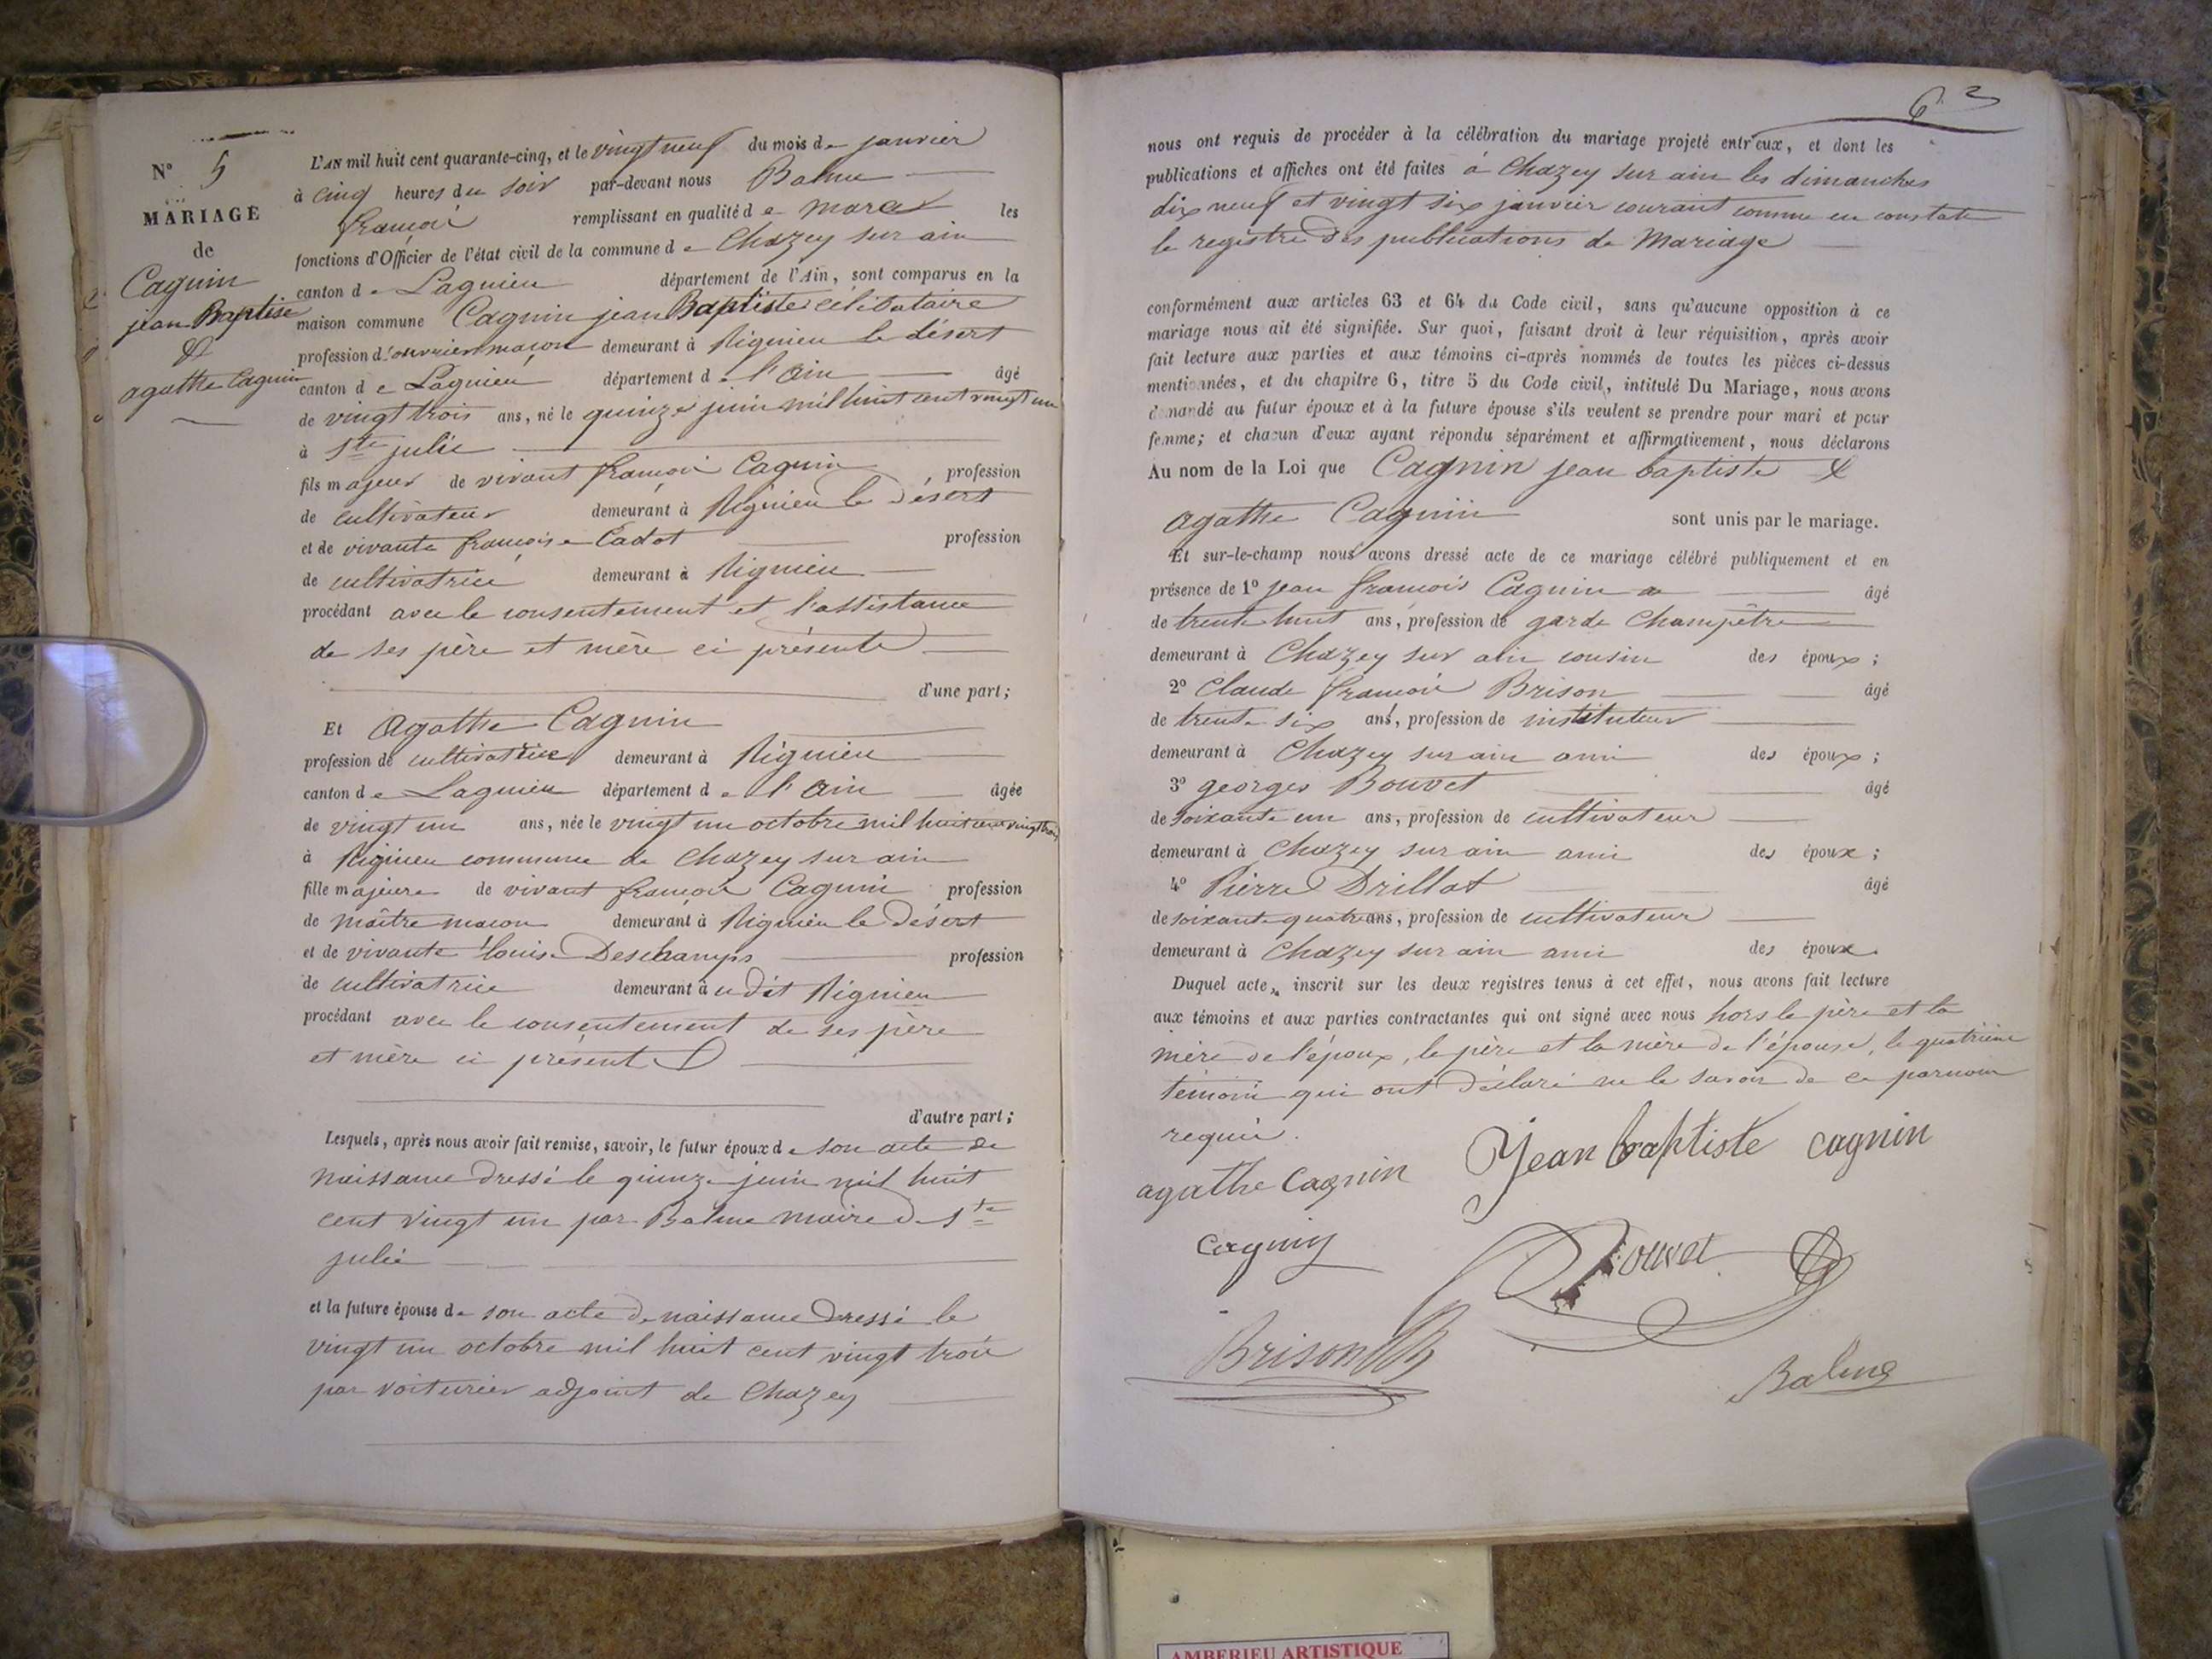 N° 5
MARIAGE
de
Cagnin
jean Baptise
&
agathe Cagnin
L'AN mil huit cent quarante-cinq, et le vingt neuf du mois de janvier
à cinq heures du soir par-devant nous Balme
françois remplissant en qualité de maire les
fonctions d'Officier de l'état civil de la commune de Chazey sur ain
canton de Lagnieu département de l'Ain, sont comparus en la
maison commune Cagnin jean Baptiste célibataire
profession d'ouvrier maçon demeurant à Rignieu le désert
canton de Lagnieu département de l'Ain âgé
de vingt trois ans, né le quinze juin mil huit cent vingt un
à Ste julie
fils majeur de vivant françois Cagnin profession
de cultivateur demeurant à Rignieu le désert
et de vivante françoise Cadot profession
de cultivatrice demeurant à Rignieu
procédant avec le consentement et l'assistance
de ses père et mère ci présents
d'une part;
Et Agathe Cagnin
profession de cultivatrice demeurant à Rignieu
canton de Lagnieu département de l'Ain âgée
de vingt un ans, née le vingt un octobre mil huit cent vingt trois
à Rignieu commune de Chazey sur ain
fille majeure de vivant françois Cagnin profession
de maître maçon demeurant à Rignieu le désert
et de vivante Louise Deschamps profession
de cultivatrice demeurant à udit Rignieu
procédant avec le consentement de ses père
et mère ci présents
d'autre part;
Lesquels, après nous avoir fait remise, savoir, le futur époux de son acte de
naissance dressé le quinze juin mil huit
cent vingt un par Balme maire de Ste
julie
et la future épouse de son acte de naissance dressé le
vingt un octobre mil huit cent vingt trois
par voiturier adjoint de Chazey
63
nous ont requis de procéder à la célébration du mariage projeté entr'eux, et dont les
publications et affiches ont été faites à Chazey sur ain les dimanches
dix neuf et vingt six janvier courant comme en constate
le registre des publications de Mariage
conformément aux articles 63 et 64 du Code civil, sans qu'aucune opposition à ce
mariage nous ait été signifiée. Sur quoi, faisant droit à leur réquisition, après avoir
fait lecture aux parties et aux témoins ci-après nommés de toutes les pièces ci-dessus
mentionnées, et du chapitre 6, titre 5 du Code civil, intitulé Du Mariage, nous avons
demandé au futur époux et à la future épouse s'ils veulent se prendre pour mari et pour
femme; et chacun d'eux ayant répondu séparément et affirmativement, nous déclarons
Au nom de la Loi que Cagnin jean baptiste &
agathe Cagnin sont unis par le mariage.
Et sur-le-champ nous avons dressé acte de ce mariage célébré publiquement et en
présence de 1° jean françois Cagnin âgé
de trente huit ans, profession de garde Champêtre
demeurant à Chazey sur ain cousin des époux;
2° Claude françois Brison âgé
de trente six ans, profession de instituteur
demeurant à Chazey sur ain ami des époux;
3° georges Bouvet âgé
de soixante un ans, profession de cultivateur
demeurant à Chazey sur ain ami des époux;
4° Pierre Drillot âgé
de soixante quatre ans, profession de cultivateur
demeurant à Chazey sur ain ami des époux.
Duquel acte, inscrit sur les deux registres tenus à cet effet, nous avons fait lecture
aux témoins et aux parties contractantes qui ont signé avec nous hors le père et la
mère de l'époux, le père et la mère de l'épouse, le quatrième
témoin qui ont déclaré ne le savoir de ce par nous
requis.
agathe Cagnin Jean baptiste cagnin
cagnin Bouvet
Brison Balme
AMBERIEU ARTISTIQUE